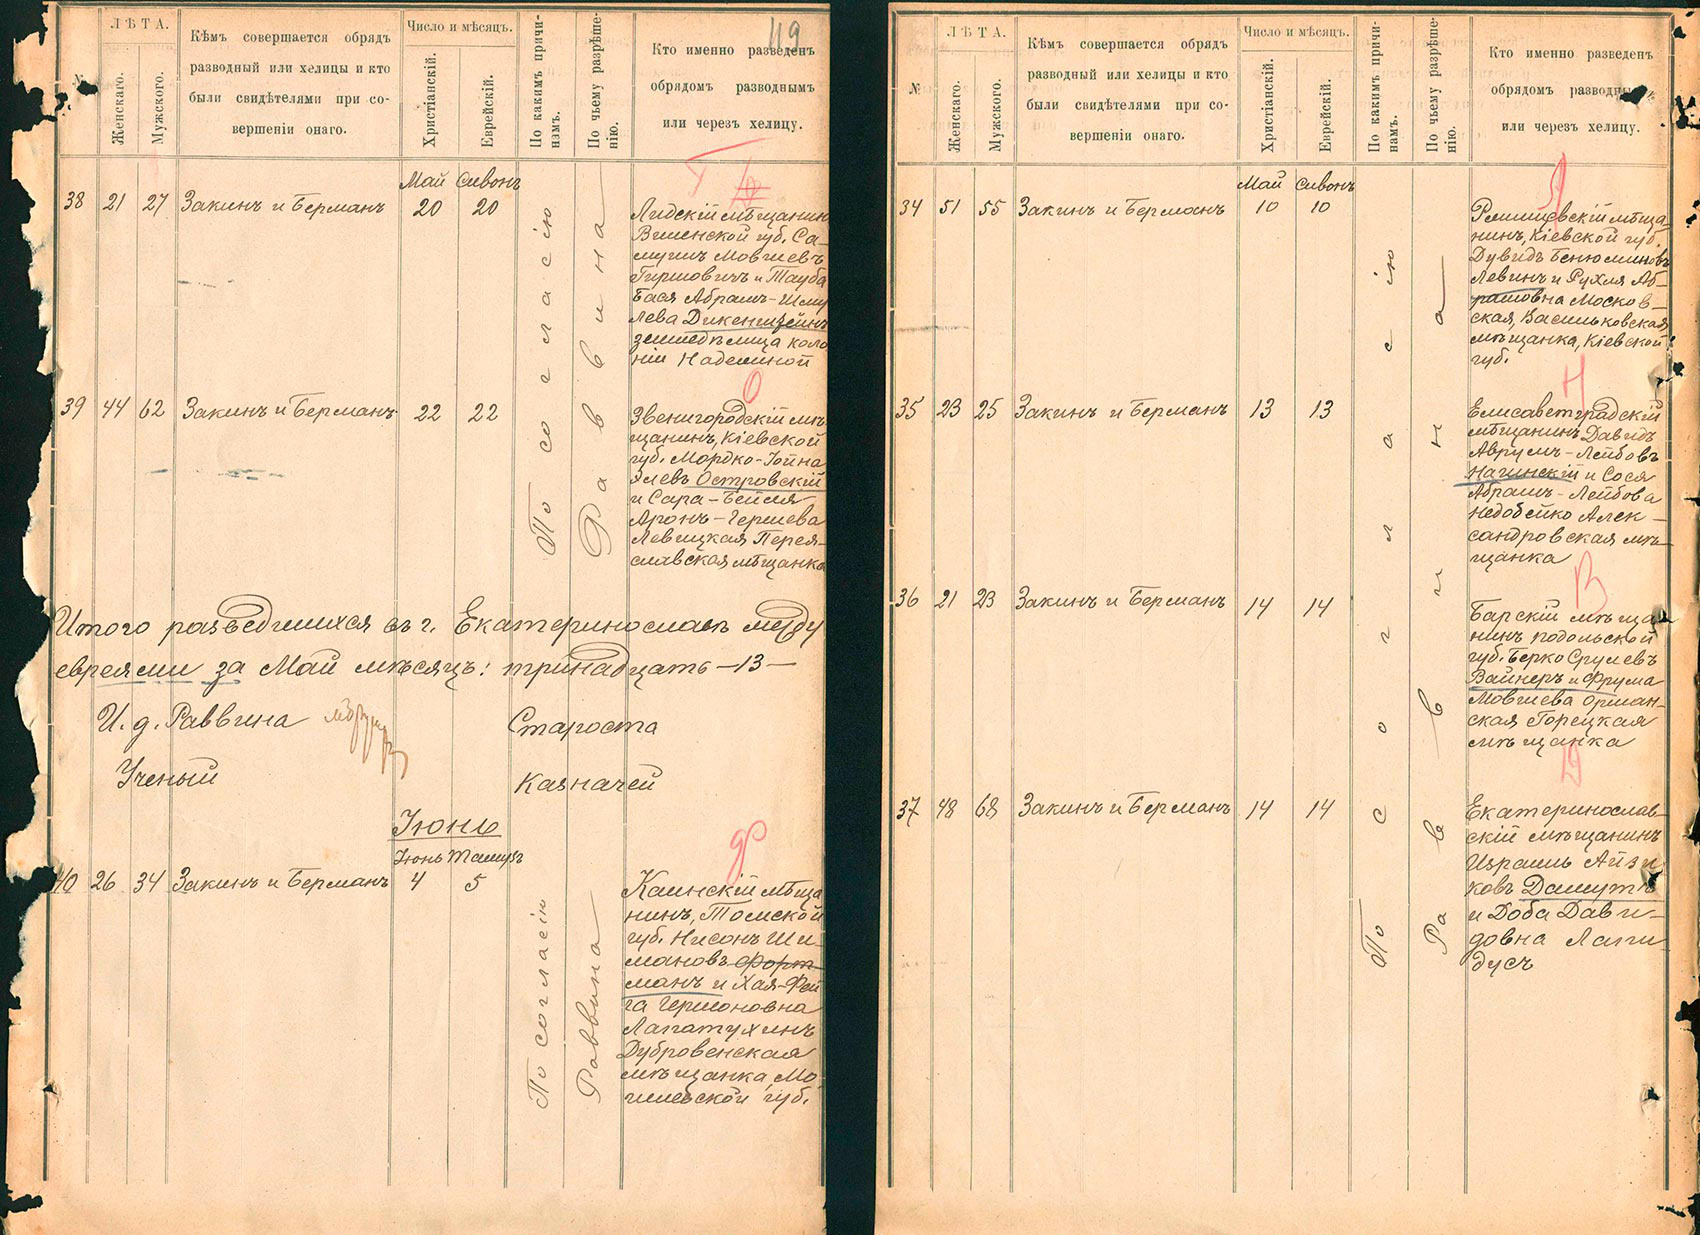 49
№
ЛѢТА.
Женскаго.
Мужского.
Кѣмъ совершается обрядъ
разводный или хелицы и кто
были свидѣтелями при со-
вершеніи онаго.
Число и мѣсяцъ.
Христіанскій.
Еврейскій.
По какимъ причи-
намъ.
По чьему разрѣше-
нію.
Кто именно разведенъ
обрядомъ разводнымъ
или черезъ хелицу.
Май Сивонъ
38 21 27 Закинъ и Берманъ 20 20
По согласію
Раввина
Лидскій мѣщанинъ
Виленской губ. Са-
муилъ Мовшевъ
Гиршовичъ и Тауба
Бася Абрамъ-Шму
лева Дикенштейнъ
земледѣлица коло
ніи Надежной
О
39 44 62 Закинъ и Берманъ 22 22
Звенигородскій мѣ-
щанинъ, Кіевской
губ. Мордко-Іойна
Элевъ Островскій
и Сара-Бейля
Аронъ-Гершева
Левицкая Перея-
славская мѣщанка
Итого разведшихся въ г. Екатеринославѣ между
евреями за Май мѣсяцъ: тринадцать —13—
И. д. Раввина
Староста
Ученый
Казначей
Іюнь
Іюнь Тамузъ
40 26 34 Закинъ и Берманъ 4 5
По согласію
Раввина
Ф
Каинскій мѣща
нинъ, Томской
губ. Нисонъ Ши-
мановъ Форт-
манъ и Хая-Фей
га Гершоновна
Лапатухинъ
Дубровенская
мѣщанка, Мо-
гилевской губ.
№
ЛѢТА.
Женскаго.
Мужского.
Кѣмъ совершается обрядъ
разводный или хелицы и кто
были свидѣтелями при со-
вершеніи онаго.
Число и мѣсяцъ.
Христіанскій.
Еврейскій.
По какимъ причи-
намъ.
По чьему разрѣше-
нію.
Кто именно разведенъ
обрядомъ разводнымъ
или черезъ хелицу.
Май Сивонъ
34 51 55 Закинъ и Берманъ 10 10
По согласію
Раввина
Л
Ржищевскій мѣща
нинъ, Кіевской губ.
Дувидъ Бенюминовъ
Левинъ и Рухля Аб-
рамовна Москов-
ская, Васильковская
мѣщанка, Кіевской
губ.
Н
35 23 25 Закинъ и Берманъ 13 13
Елисаветградскій
мѣщанинъ Давидъ
Аврумъ-Лейбовъ
Нагинскій и Сося
Абрамъ-Лейбова
Недобейко Алек-
сандровская мѣ-
щанка
В
36 21 23 Закинъ и Берманъ 14 14
Барскій мѣща
нинъ подольской
губ. Берко Срулевъ
Вайнеръ и Фрума
Мовшева Орман-
ская Горецкая
мѣщанка
Д
37 48 68 Закинъ и Берманъ 14 14
Екатеринослав-
скій мѣщанинъ
Израиль Айзи
ковъ Дамутъ
и Доба Дави-
довна Лапи-
дусъ